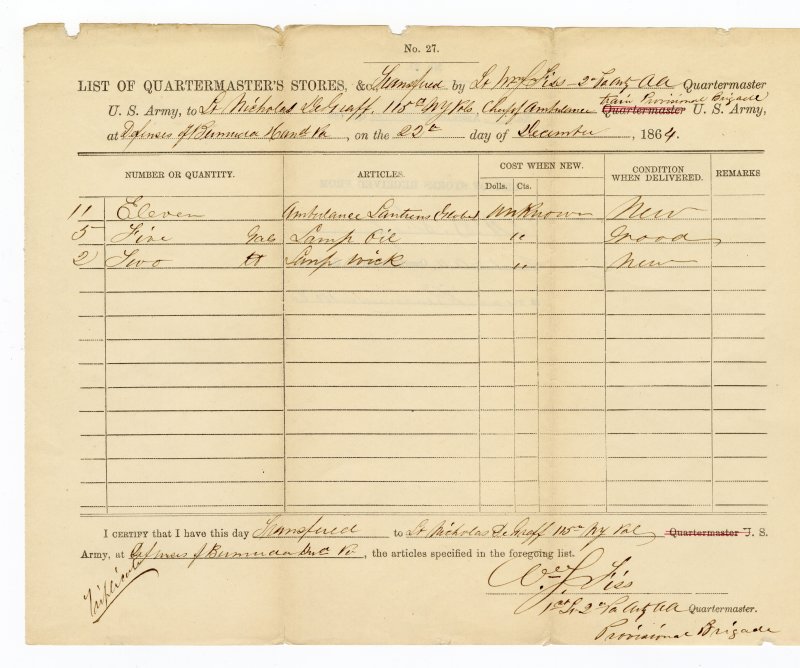 No. 27.
LIST OF QUARTERMASTER'S STORES, &c Transfered by Lt Wm J Fiss - 2d Pa Arty AA Quartermaster
U. S. Army, to Lt Nicholas DeGraff, 115th NY Vols, Chief Ambulance train Provisional Brigade Quartermaster U. S. Army,
at Defenses of Bermuda Hund Va, on the 22d day of December, 1864.
NUMBER OR QUANTITY. ARTICLES. COST WHEN NEW. CONDITION WHEN DELIVERED. REMARKS
Dolls. Cts.
11 Eleven Ambulance Lantrens Globes unknown New
5 Five Gals Lamp Oil " Good
2 Two lb Lamp Wick " New
I CERTIFY that I have this day Transfered to Lt Nicholas DeGraff 115th NY Vol Quartermaster U. S.
Army, at Defenses of Bermuda Hund Va, the articles specified in the foregoing list.
Triplicate
Wm J Fiss
1st Lt 2d Pa Arty AA Quartermaster.
Provisional Brigade